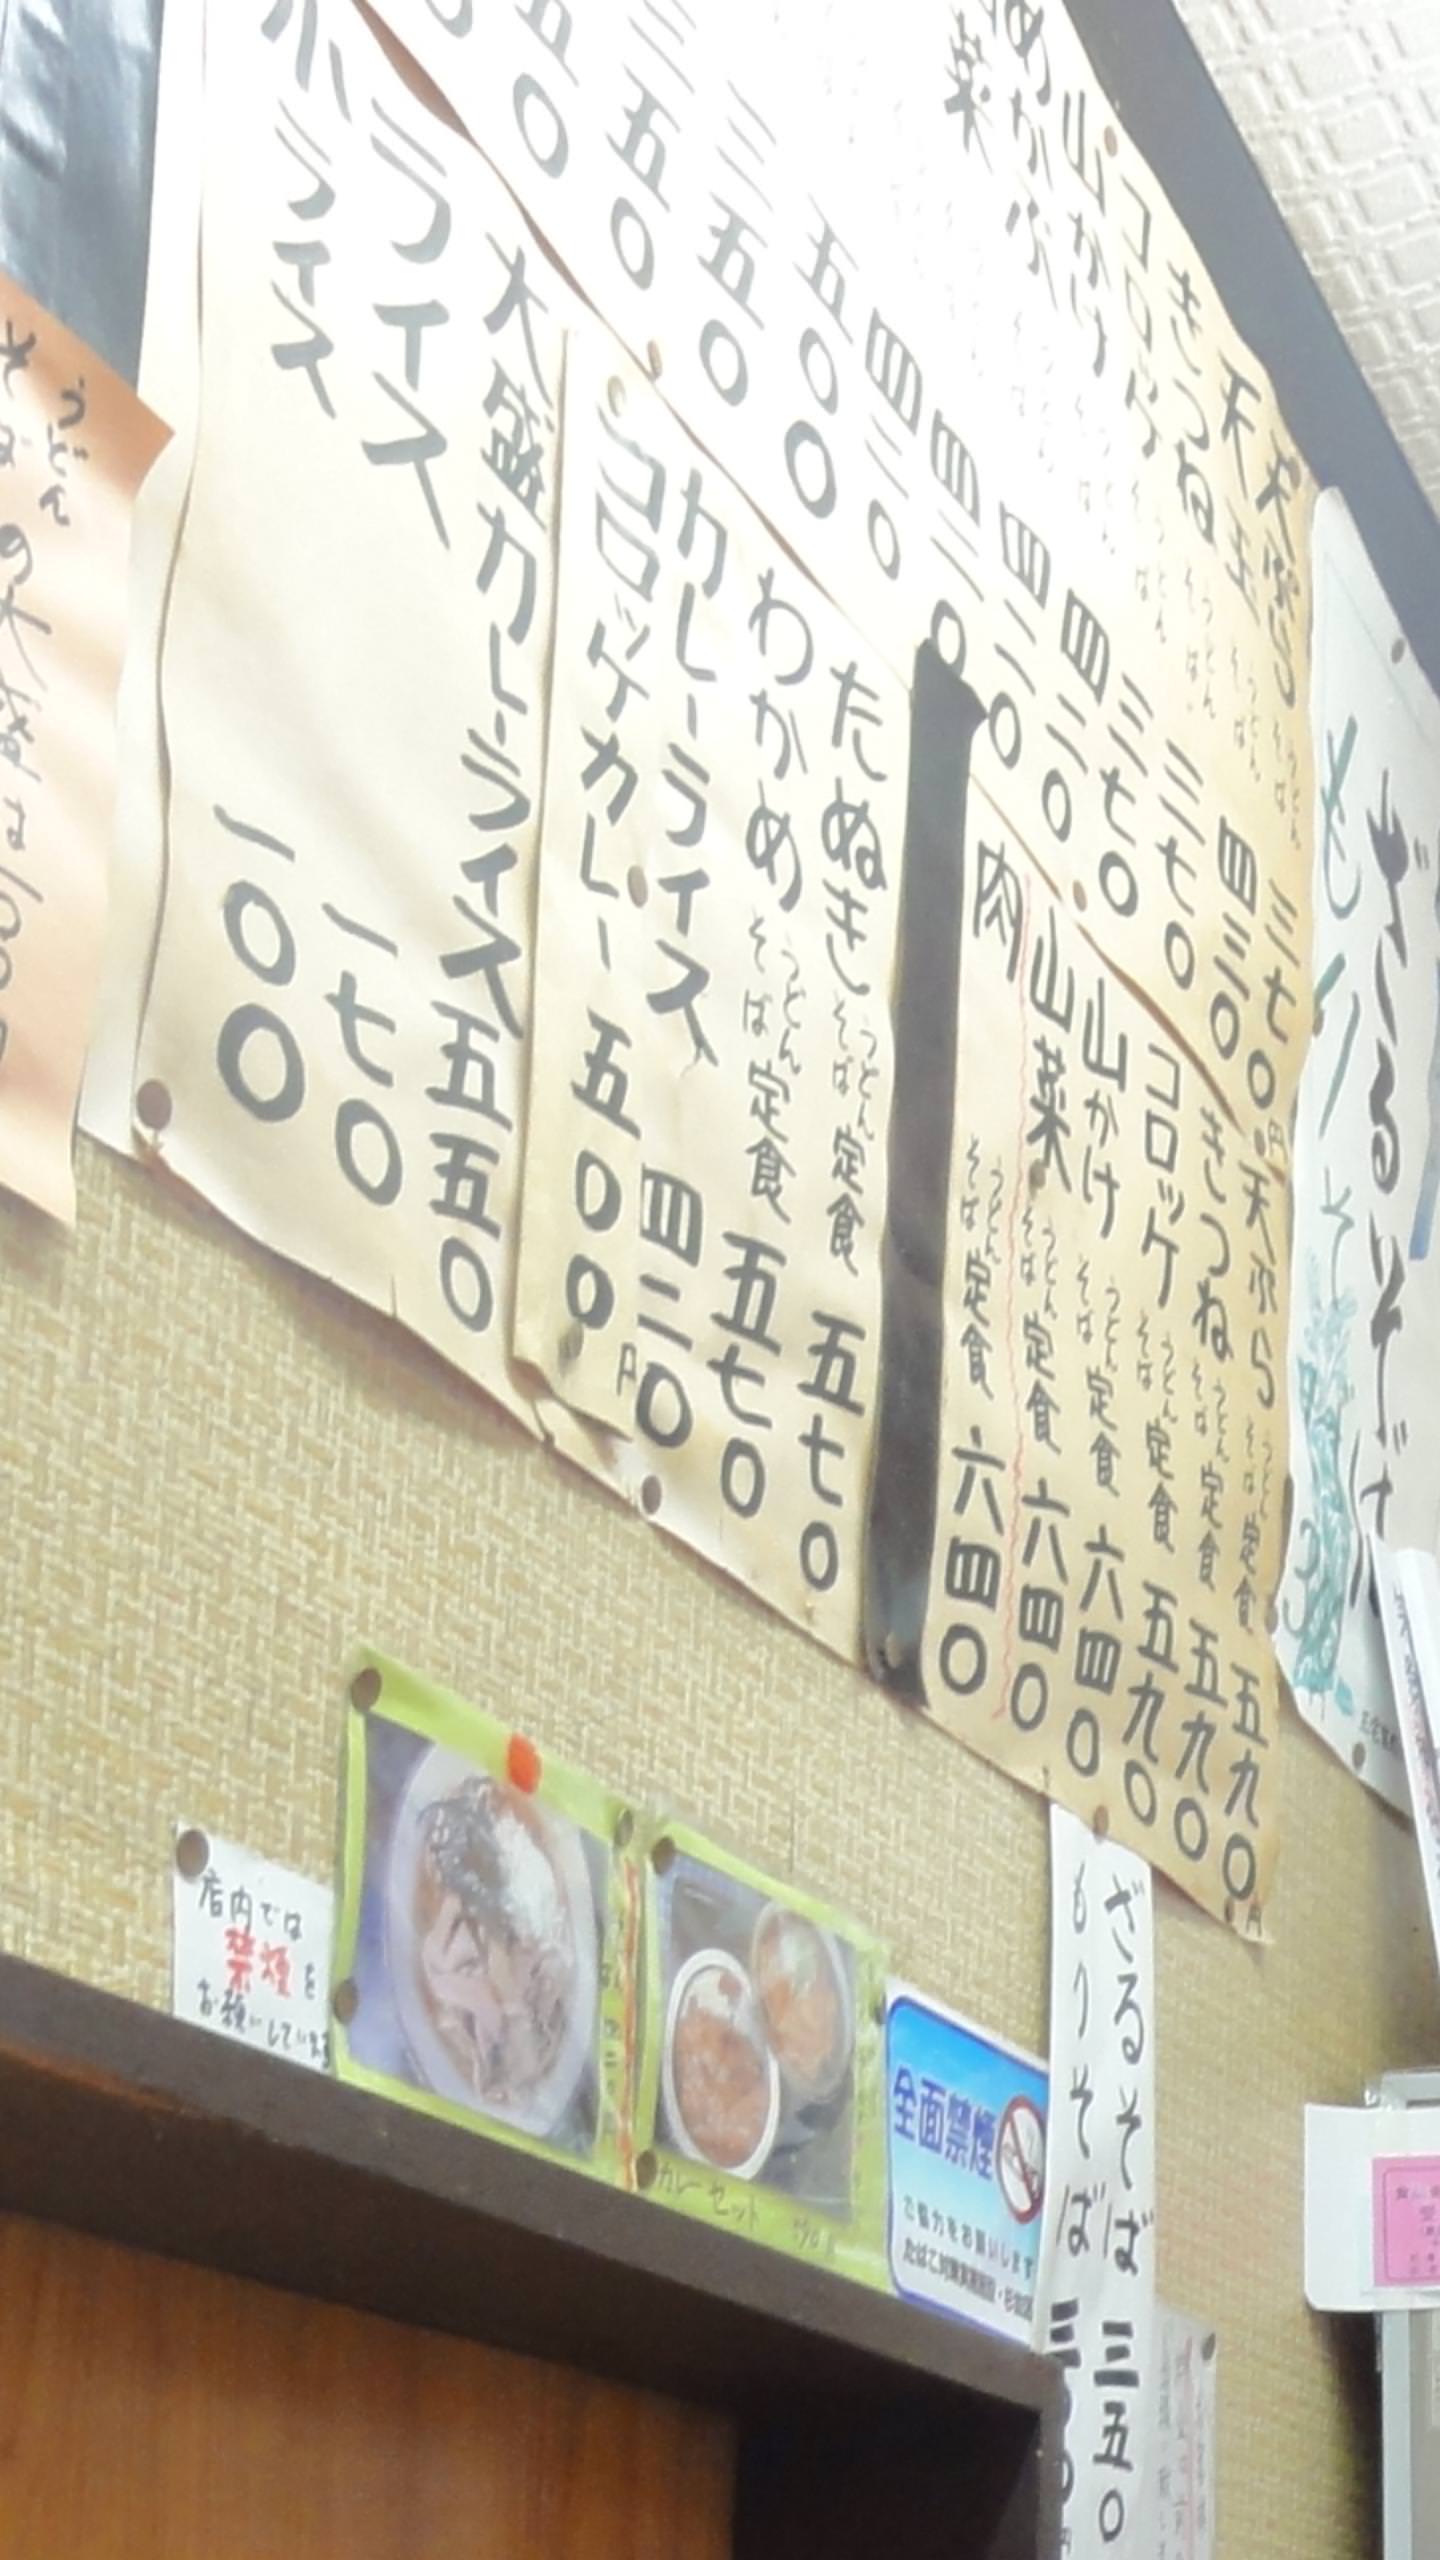 ざるそば
もり
天ぷら うどん そば 三七〇円
天玉 うどん そば 四三〇
きつね うどん そば 三七〇
コロッケ うどん そば 三七〇
山かけ うどん そば 四二〇
めかぶ
四二〇
四二〇
四三〇
五〇〇
三五〇
三五〇
五〇
天ぷら うどん そば 定食 五九〇円
きつね うどん そば 定食 五九〇
コロッケ うどん そば 定食 五九〇
山かけ うどん そば 定食 六四〇
山菜 うどん そば 定食 六四〇
肉 うどん そば 定食 六四〇
たぬき うどん そば 定食 五七〇
わかめ うどん そば 定食 五七〇
カレーライス 四二〇円
コロッケカレー 五〇〇
大盛カレーライス 五五〇
ライス 一七〇
小ライス 一〇〇
うどん
そば の大盛は100円
店内では
禁煙を
お願いしています
カレーセット
全面禁煙
ご協力をお願いします
ざるそば 三五〇
もりそば 三〇〇円